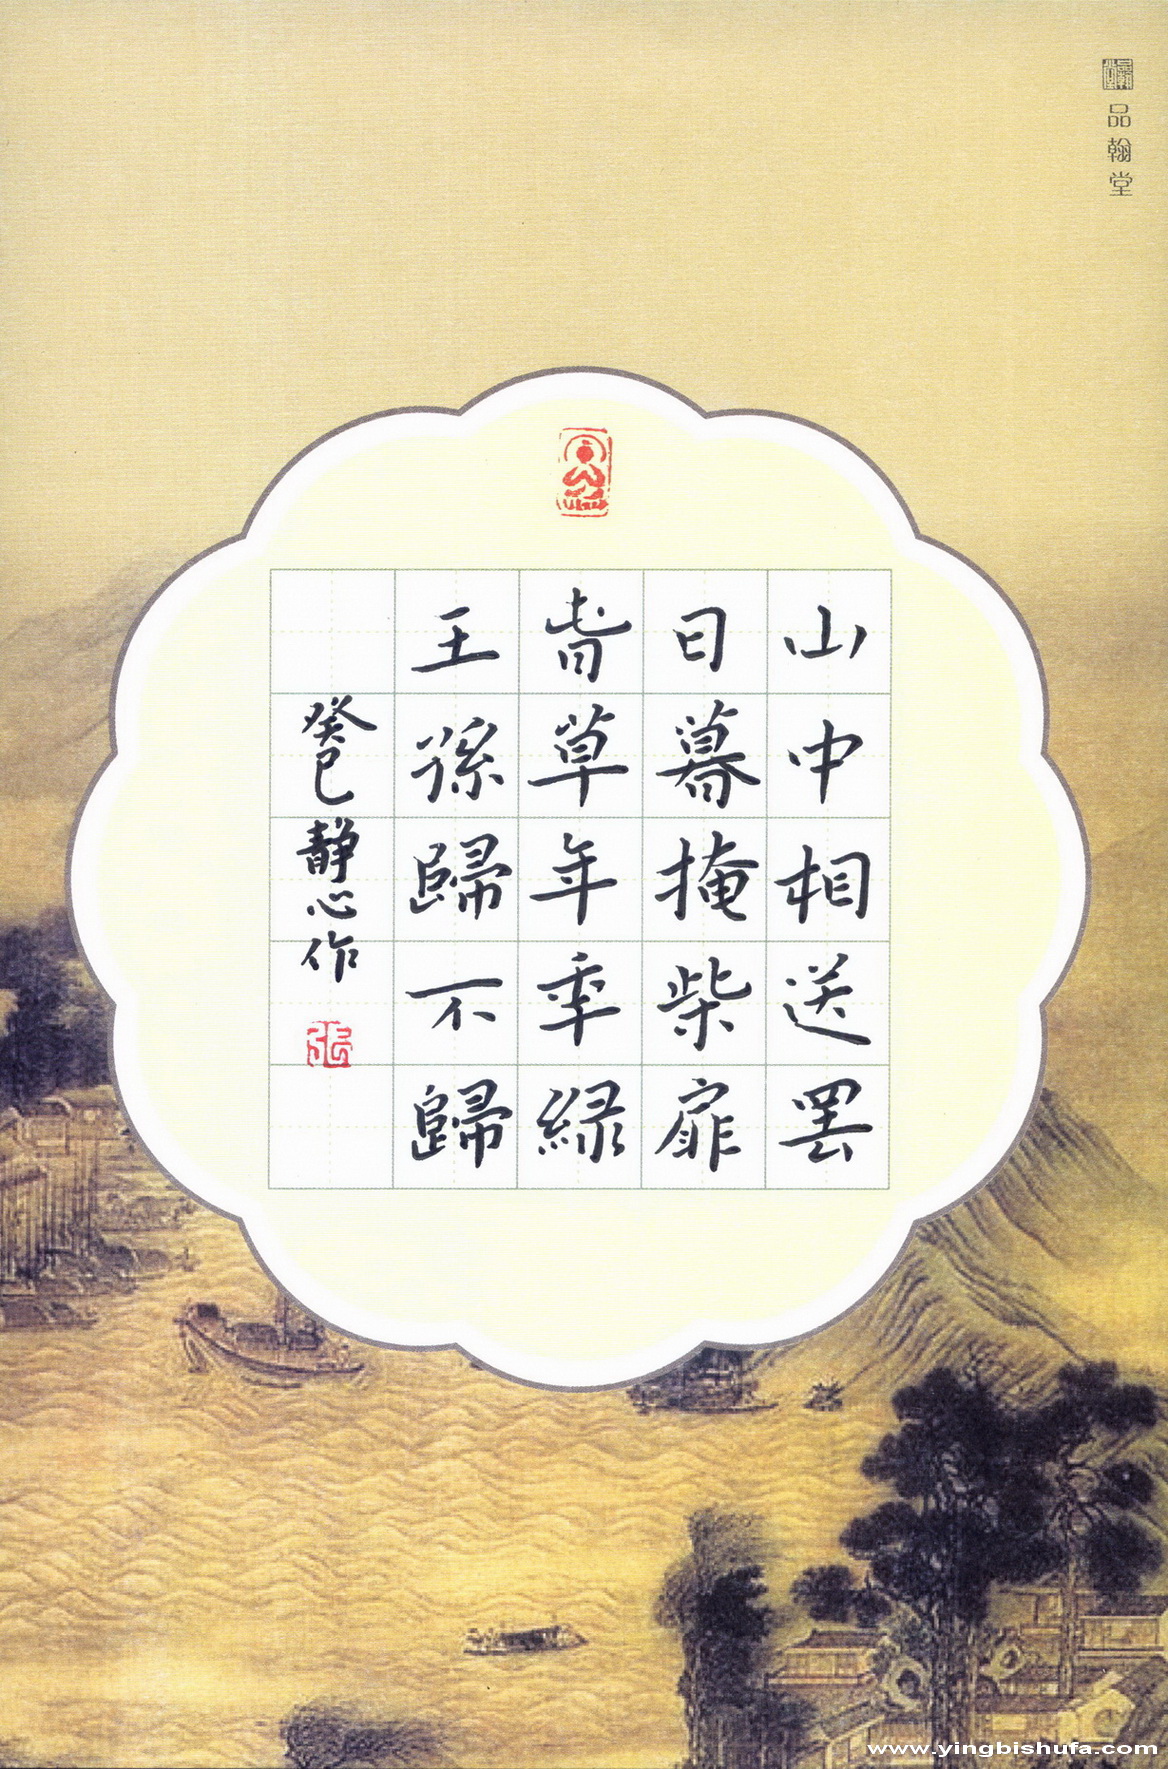 品翰堂
山中相送罢
日暮掩柴扉
旾草年秊緑
王孫歸不歸
癸巳静心作
www.yingbishufa.com